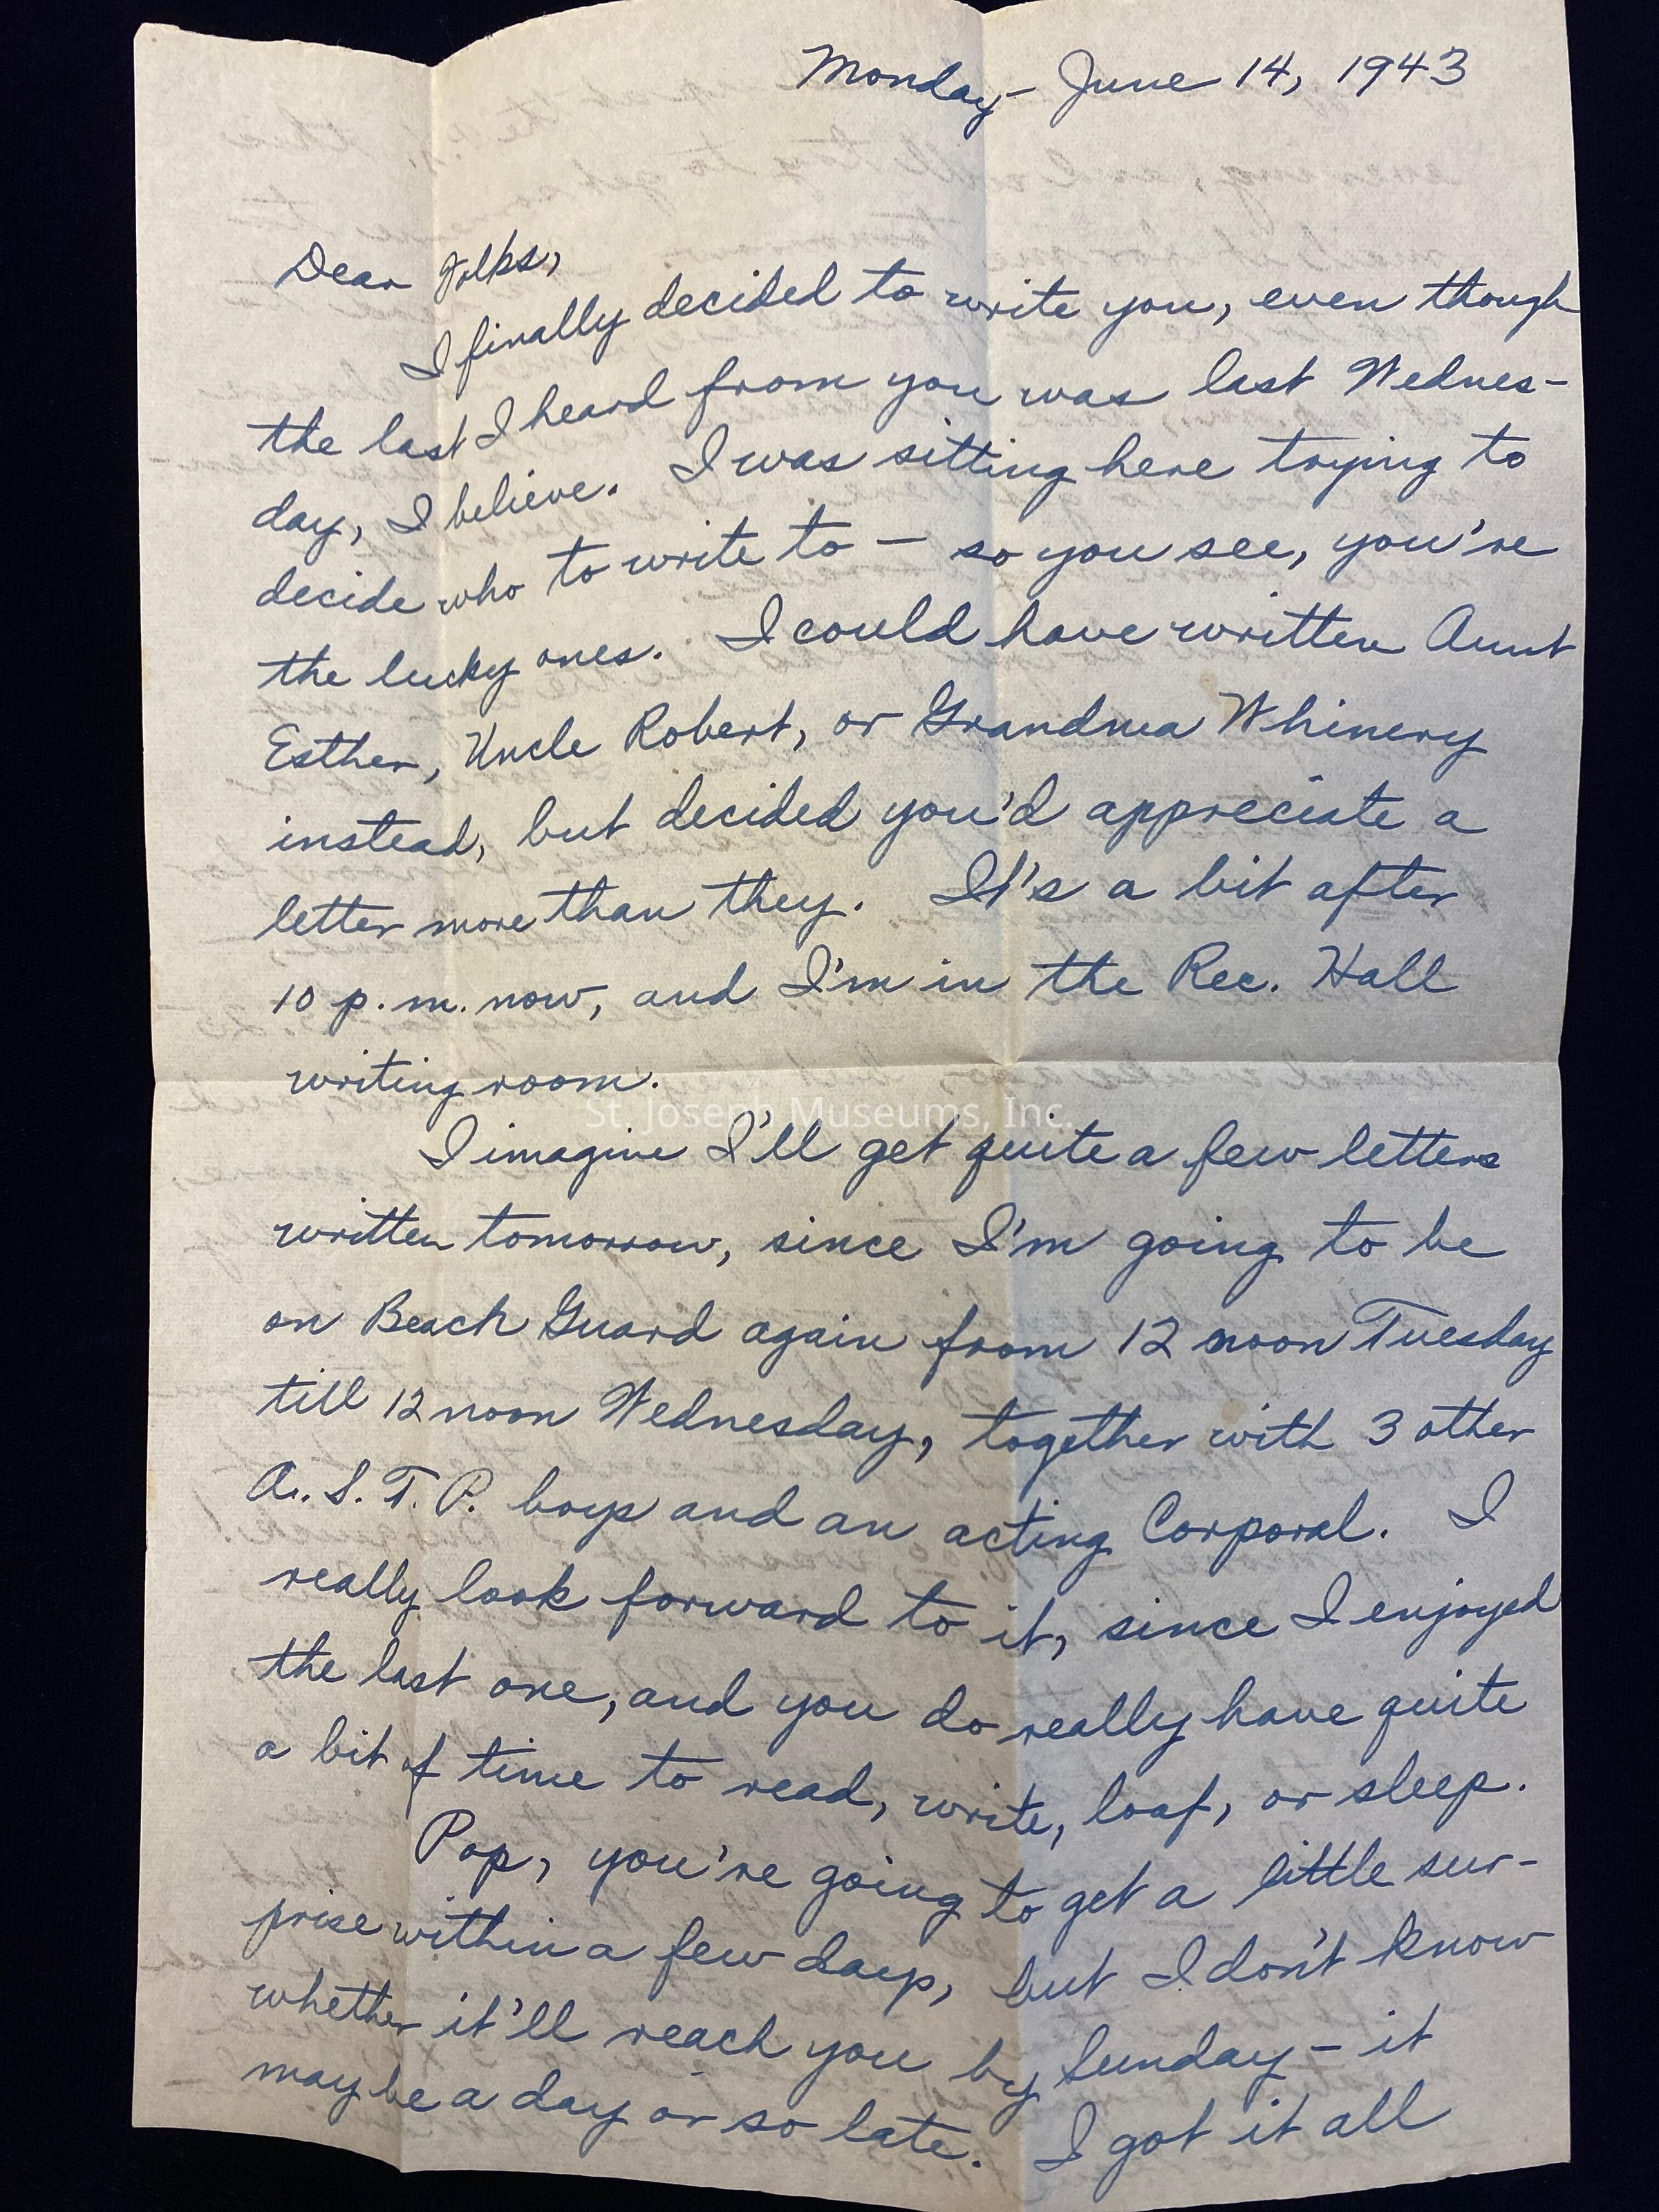 Monday - June 14, 1943
Dear Folks,
I finally decided to write you, even though
the last I heard from you was last Wednes-
day, I believe. I was sitting here trying to
decide who to write to — so you see, you're
the lucky ones. I could have written Aunt
Esther, Uncle Robert, or Grandma Whinery
instead, but decided you'd appreciate a
letter more than they. It's a bit after
10 p.m. now, and I'm in the Rec. Hall
writing room.
St. Joseph Museums, Inc.
I imagine I'll get quite a few letters
written tomorrow, since I'm going to be
on Beach Guard again from 12 noon Tuesday
till 12 noon Wednesday, together with 3 other
A.S.T.P. boys and an acting Corporal. I
really look forward to it, since I enjoyed
the last one, and you do really have quite
a bit of time to read, write, loaf, or sleep.
Pop, you're going to get a little sur-
prise within a few days, but I don't know
whether it'll reach you by Sunday - it
may be a day or so late. I got it all